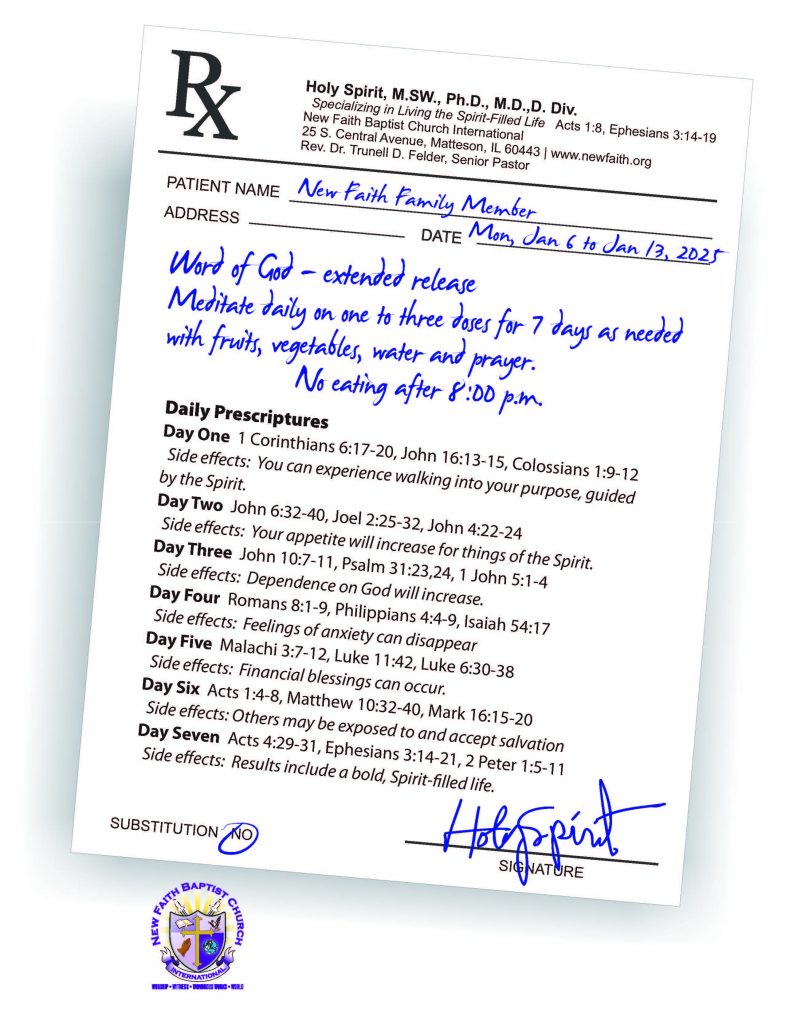 Rx
Holy Spirit, M.SW., Ph.D., M.D.,D. Div.
Specializing in Living the Spirit-Filled Life Acts 1:8, Ephesians 3:14-19
New Faith Baptist Church International
25 S. Central Avenue, Matteson, IL 60443 | www.newfaith.org
Rev. Dr. Trunell D. Felder, Senior Pastor
PATIENT NAME New Faith Family Member
ADDRESS DATE Mon, Jan 6 to Jan 13, 2025
Word of God – extended release
Meditate daily on one to three doses for 7 days as needed
with fruits, vegetables, water and prayer.
No eating after 8:00 p.m.
Daily Prescriptures
Day One 1 Corinthians 6:17-20, John 16:13-15, Colossians 1:9-12
Side effects: You can experience walking into your purpose, guided
by the Spirit.
Day Two John 6:32-40, Joel 2:25-32, John 4:22-24
Side effects: Your appetite will increase for things of the Spirit.
Day Three John 10:7-11, Psalm 31:23,24, 1 John 5:1-4
Side effects: Dependence on God will increase.
Day Four Romans 8:1-9, Philippians 4:4-9, Isaiah 54:17
Side effects: Feelings of anxiety can disappear
Day Five Malachi 3:7-12, Luke 11:42, Luke 6:30-38
Side effects: Financial blessings can occur.
Day Six Acts 1:4-8, Matthew 10:32-40, Mark 16:15-20
Side effects: Others may be exposed to and accept salvation
Day Seven Acts 4:29-31, Ephesians 3:14-21, 2 Peter 1:5-11
Side effects: Results include a bold, Spirit-filled life.
Holy Spirit
SUBSTITUTION NO
SIGNATURE
NEW FAITH BAPTIST CHURCH
INTERNATIONAL
WORSHIP • WITNESS • WONDROUS WORKS • WORLD